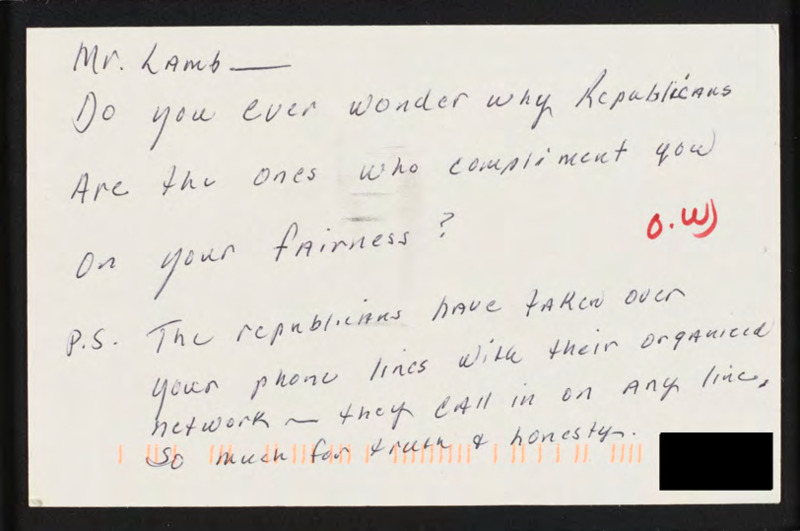 Mr. Lamb —
Do you ever wonder why Republicans
Are the ones who compliment you
On your fairness?
O.W)
P.S. The republicans have taken over
your phone lines with their organized
network — they call in on any line.
So much for truth & honesty.